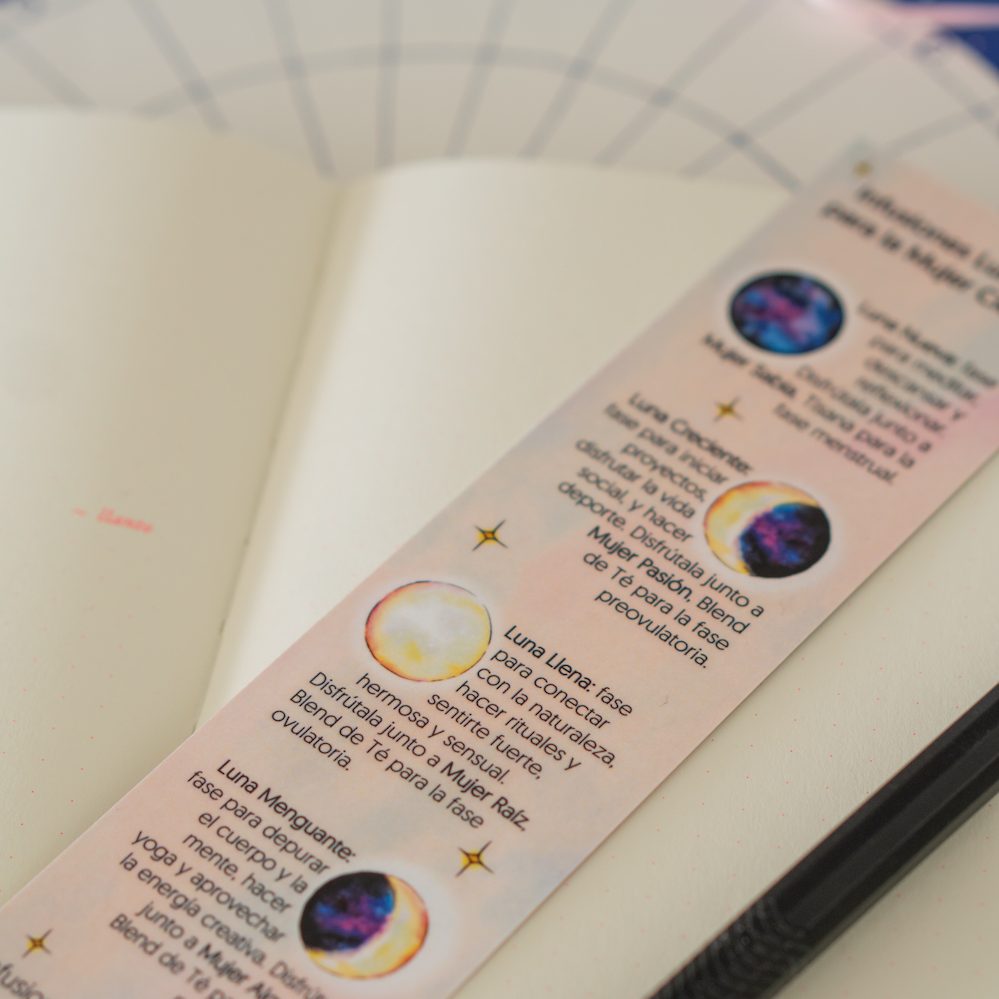 Infusiones
para la Mujer
Luna Nueva: fase
para meditar,
descansar y
reflexionar.
Disfrútala junto a
Mujer Sabia, Tisana para la
fase menstrual.
Luna Creciente:
fase para iniciar
proyectos,
disfrutar la vida
social, y hacer
deporte. Disfrútala junto a
Mujer Pasión, Blend
de Té para la fase
preovulatoria.
Luna Llena: fase
para conectar
con la naturaleza,
hacer rituales y
sentirte fuerte,
hermosa y sensual.
Disfrútala junto a Mujer Raíz,
Blend de Té para la fase
ovulatoria.
Luna Menguante:
fase para depurar
el cuerpo y la
mente, hacer
yoga y aprovechar
la energía creativa.
junto a Mujer
Blend de Té
llanto